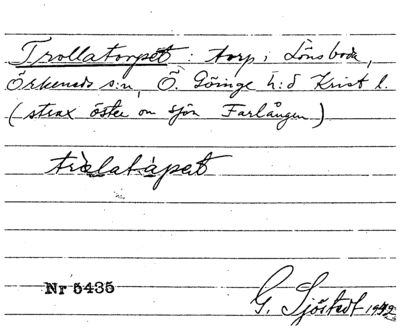 Trollatorpet : torp i Lönsboda,
Örkeneds s:n, Ö. Göinge h:d Krist l.
(strax öster om sjön Farlången)
Nr 5435
G. Sjöstedt